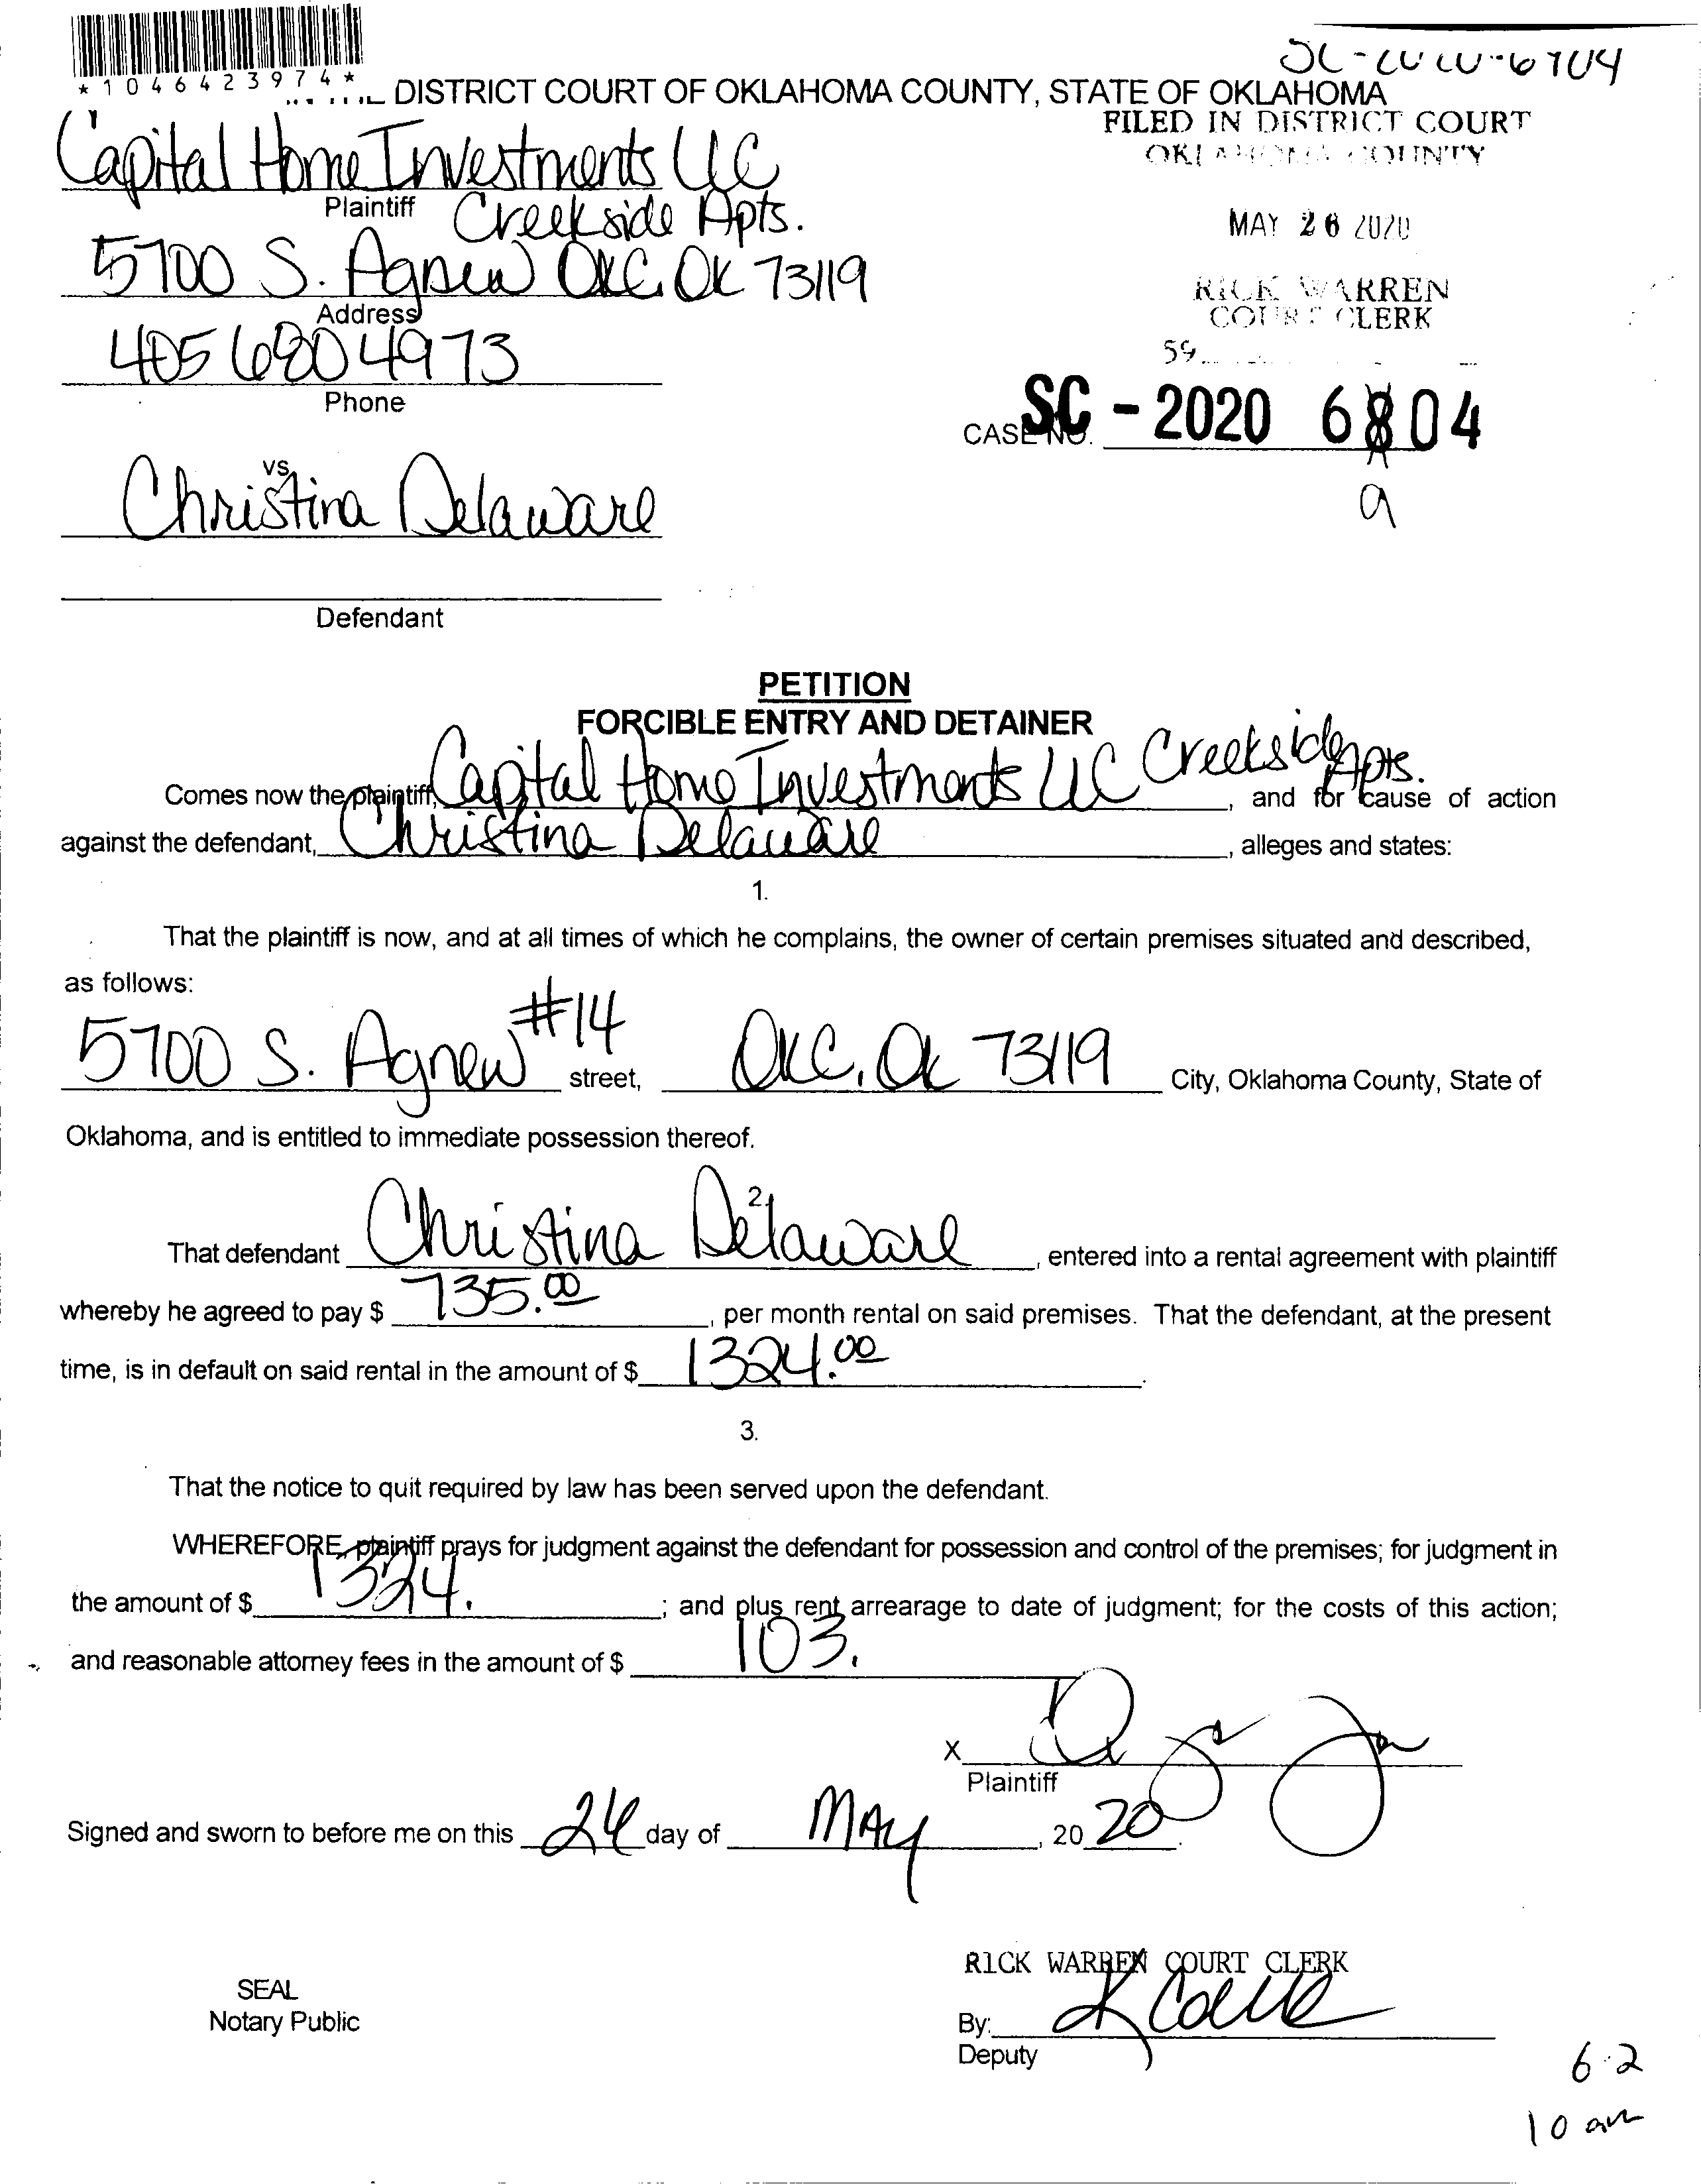 *1046423974*
SC-2020-6904
DISTRICT COURT OF OKLAHOMA COUNTY, STATE OF OKLAHOMA
FILED IN DISTRICT COURT
OKLAHOMA COUNTY
Capital Home Investments LLC
Plaintiff
Creekside Apts.
MAY 26 2020
5700 S. Agnew OKC, OK 73119
Address
RICK WARREN
COURT CLERK
405 680 4973
Phone
59
CASE NO. SC - 2020 6804
9
vs.
Christina Delaware
Defendant
PETITION
FORCIBLE ENTRY AND DETAINER
Comes now the plaintiff, Capital Home Investments LLC Creekside Apts., and for cause of action
against the defendant, Christina Delaware, alleges and states:
1.
That the plaintiff is now, and at all times of which he complains, the owner of certain premises situated and described,
as follows:
5700 S. Agnew #14 street, OKC, Ok 73119 City, Oklahoma County, State of
Oklahoma, and is entitled to immediate possession thereof.
2.
That defendant Christina Delaware, entered into a rental agreement with plaintiff
whereby he agreed to pay $ 735.00, per month rental on said premises. That the defendant, at the present
time, is in default on said rental in the amount of $ 1324.00.
3.
That the notice to quit required by law has been served upon the defendant.
WHEREFORE, plaintiff prays for judgment against the defendant for possession and control of the premises; for judgment in
the amount of $ 1324.; and plus rent arrearage to date of judgment; for the costs of this action;
and reasonable attorney fees in the amount of $ 103.
X
Plaintiff
Signed and sworn to before me on this 26 day of MAY, 2020.
RICK WARREN COURT CLERK
SEAL
Notary Public
By:
Deputy
6-2
10 am